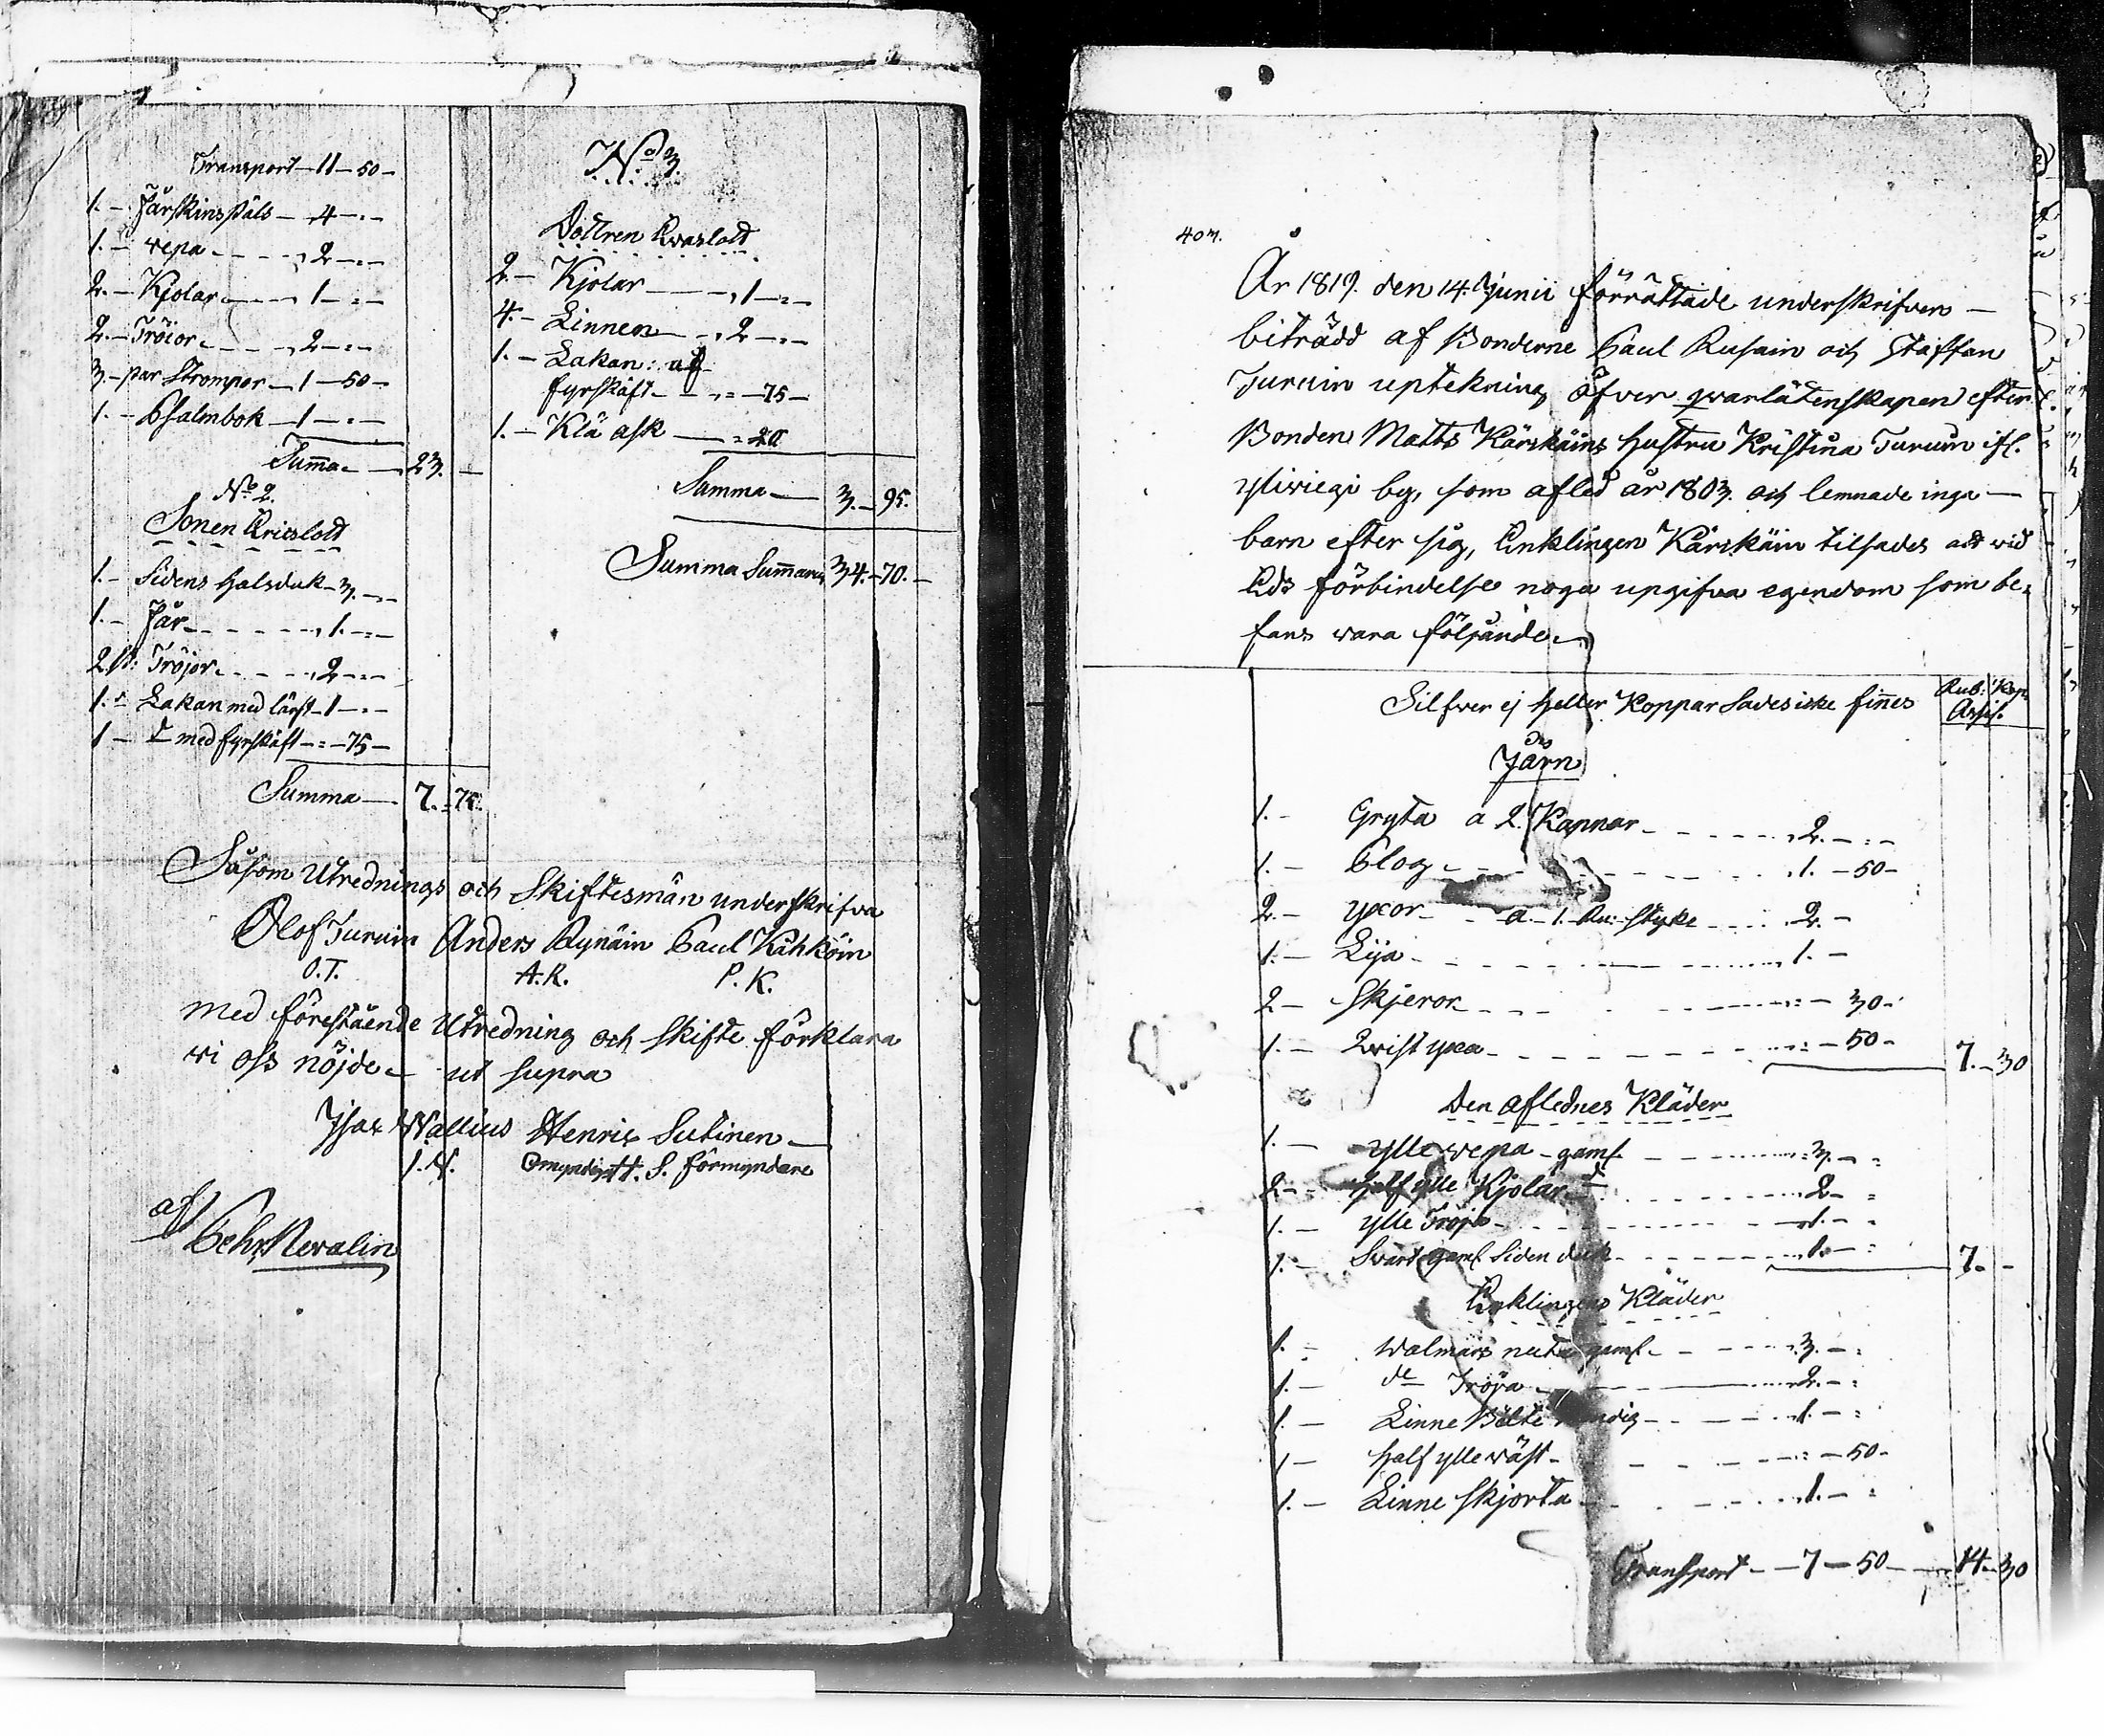 Transport — 11 — 50 —
1. — Fårskinspäls — 4 — „ —
1. — wepa — — — „ 2 — „ —
2. — Kjolar — — „ 1 — „ —
2. — Tröior — — „ 2 — „ —
3. — par Strompor — 1 — 50 —
1. — Psalmbok — 1 — „ —
Summa — 23. —
No 2.
Sonen Ericslott
1. — Sidens halsduk — 3. — „ —
1. — Får — — — „ 1. — „ —
2 st: Tröjor — — „ 2 — „ —
1. — Lakan med lärft — 1 — „ —
1 — do med fyrskäft — „ — 75 —
Summa — 7. — 75.
No 3.
Dottren Evaslott
2. — Kjolar — — „ 1 — „ —
4. — Linnen — „ 2 — „ —
1. — Lakan: af
fyrskäft — — „ — 75 —
1. — Klä ask — „ 20
Summa — 3. — 95.
Summa Summarum 34. — 70. —
Såsom Utrednings och Skiftesmän underskrifva
Olof Turuin Anders Rynäin Paul Kähköin
O.T. A.R. P.K.
med förestående Utredning och skifte förklara
wi oss nöjde — ut supra
Isac Wallius Henric Sutinen —
I.W. H.S. förmyndare
af
Pehr Nevalin
403.
År 1819. den 14. Junii förrättade underskrifven —
biträdd af Bonderne Paul Rusain och Staffan
Turuin uptekning öfver qwarlåtenskapen efter
Bonden Matts Kärskäins hustru Kristina Turuin ifl.
yliwiegi by, som afled år 1803. och lemnade inga —
barn efter sig, Enklingen Kärskäin tilsades att wid
Eds förbindelse noga upgifva egendom som be-
fans wara följande —
Silfwer ej heller Koppar Sades icke finnes
Rub: Kop.
Assig.
Järn
1. — Gryta a 2. Kannor — — — „ 2. — „ —
1. — Plog — — — „ 1. — 50 —
2. — yxor — a — 1. Ru: styke — — 2. —
1. — Lija — — — „ 1. —
2 — Skjeror — — — „ — 30 —
1. — Qwist yxa — — — „ — 50 — 7. — 30
Den aflednes Kläder
1. — ylle wepa — gaml — — — „ 3. — „
2 — half ylle Kjolar do — — 2 — „
1. — ylle Tröja — — — 1. — „
1. — Swart gaml Siden duk — — 1. — „ 7. —
Enklingens Kläder
1. — walmars gaml — — 3. — „
1. — do Tröja — — 2. — „
1. — Linne Bälte — — 1. — „
1 — half ylle wäst — — — „ — 50 —
1. — Linne skjorta — — 1. — „
Transport — — 7 — 50 — 14 — 30